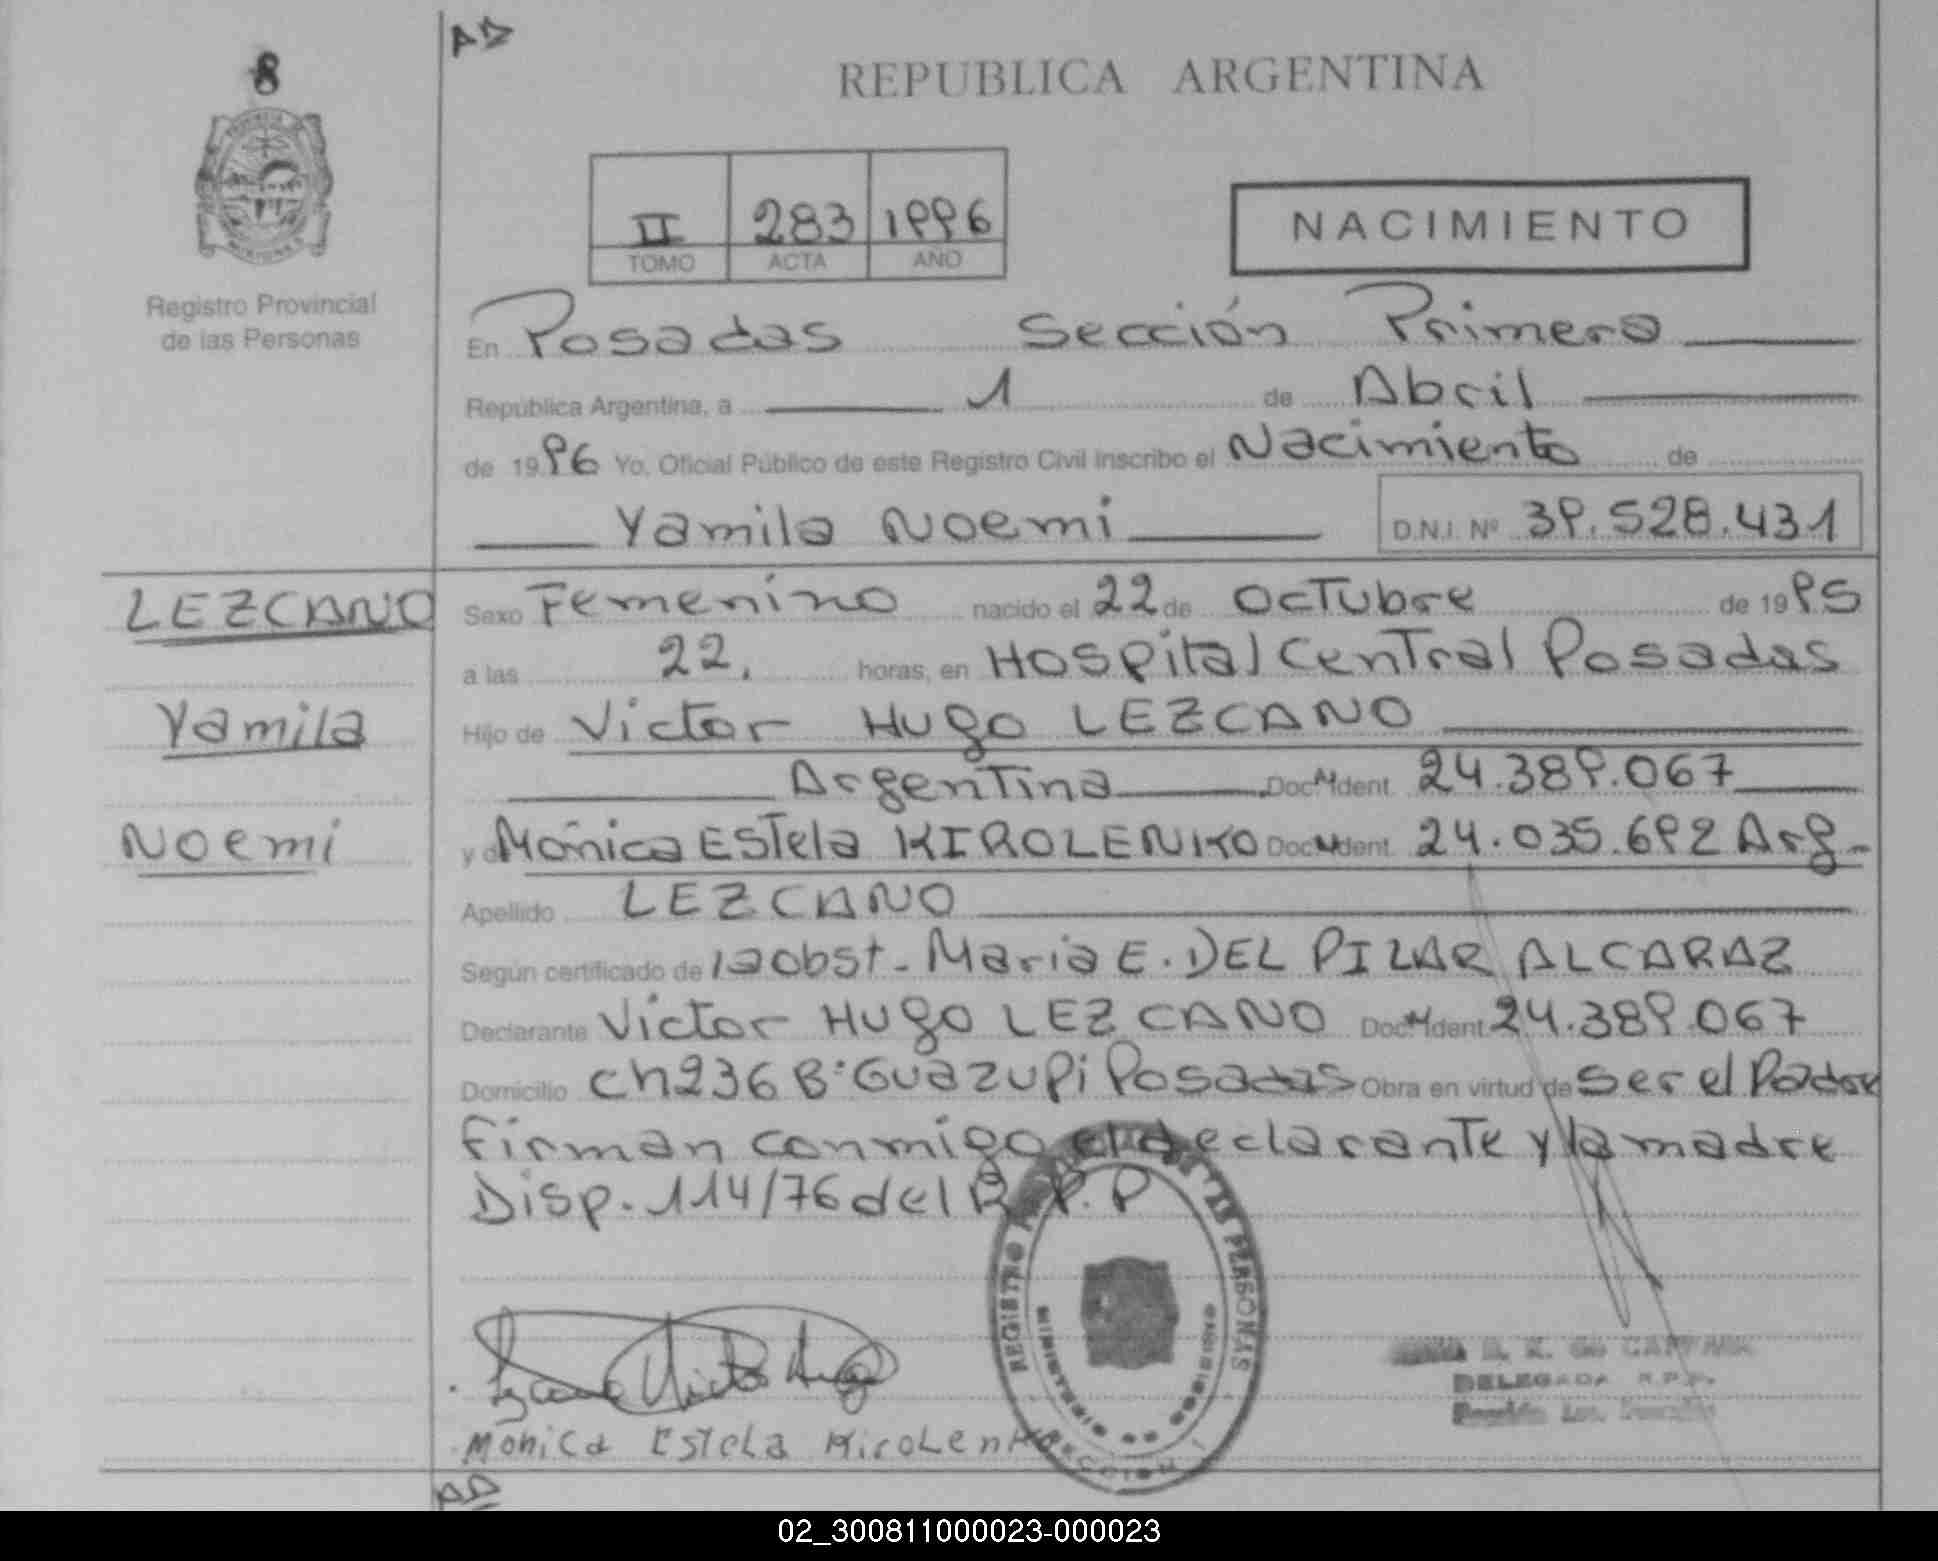 AD
8
REPUBLICA ARGENTINA
II 283 1996
TOMO ACTA AÑO
NACIMIENTO
Registro Provincial
de las Personas
En Posadas Sección Primera
República Argentina, a 1 de Abril
de 1996 Yo, Oficial Público de este Registro Civil inscribo el Nacimiento de
Yamila Noemi D.N.I. Nº 39.528.431
LEZCANO
Yamila
Noemi
Sexo Femenino nacido el 22 de Octubre de 1995
a las 22. horas, en Hospital Central Posadas
Hijo de Victor Hugo LEZCANO
Argentina Doc. M Ident. 24.389.067
y de Mónica Estela KIROLENKO Doc. M Ident. 24.035.692 Arg-
Apellido LEZCANO
Según certificado de la obst- Maria E. DEL PILAR ALCARAZ
Declarante Victor Hugo LEZCANO Doc. M Ident. 24.389.067
Domicilio Ch236 B: Guazupi Posadas Obra en virtud de ser el Padre
Firman conmigo el declarante y la madre
Disp. 114/76 del R.P.P
REGISTRO PERSONAS
MINISTERIO DE GOBIERNO
SECCION 1
Monica Estela Kirolenko
DELEGADA R.P.P.
AD
02_300811000023-000023